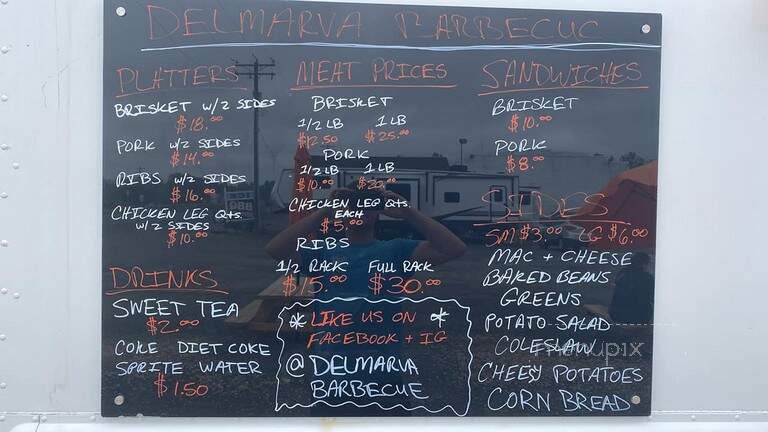 DELMARVA BARBECUE
PLATTERS
BRISKET W/2 SIDES
$18.00
PORK W/2 SIDES
$14.00
RIBS W/2 SIDES
$16.00
CHICKEN LEG Qts.
W/2 SIDES
$10.00
DRINKS
SWEET TEA
$2.00
COKE DIET COKE
SPRITE WATER
$1.50
MEAT PRICES
BRISKET
1/2 LB 1 LB
$12.50 $25.00
PORK
1/2 LB 1 LB
$10.00 $20.00
CHICKEN LEG Qts.
EACH
$5.00
RIBS
1/2 RACK FULL RACK
$15.00 $30.00
* LIKE US ON *
FACEBOOK + IG
@DELMARVA
BARBECUE
SANDWICHES
BRISKET
$10.00
PORK
$8.00
SIDES
SM $3.00 LG $6.00
MAC + CHEESE
BAKED BEANS
GREENS
POTATO-SALAD
COLESLAW
CHEESY POTATOES
CORN BREAD
menupix